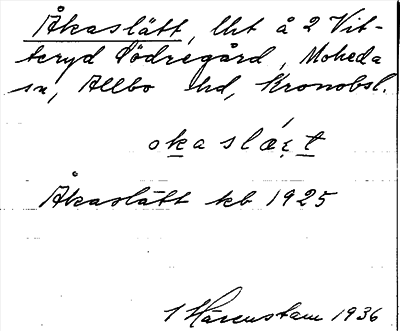 Åkaslätt, lht å 2 Vit-
teryd Södregård, Moheda
sn, Allbo hd, Kronobsl.
okaslǽ̨t
Åkaslätt kb 1925
I Hårenstam 1936